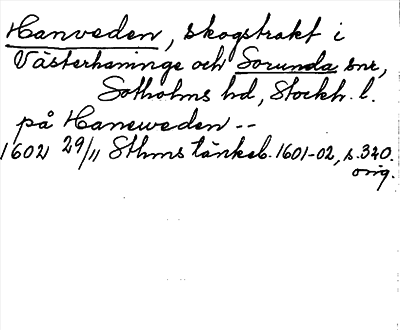 Hanveden, skogstrakt i
Västerhaninge och Sorunda snr,
Sotholms hd, Stockh. l.
på Haneweden --
1602 29/11 Sthms tänkeb. 1601-02, s. 320.
orig.